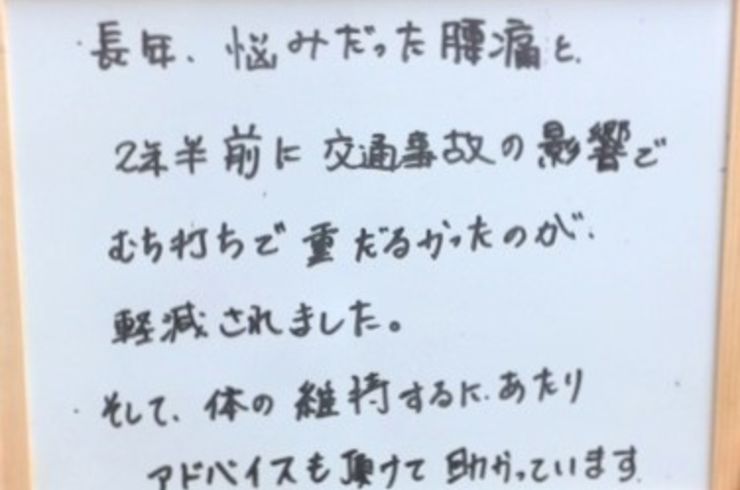 長年、悩みだった腰痛と、
2年半前に交通事故の影響で
むち打ちで重だるかったのが、
軽減されました。
そして、体の維持するに、あたり
アドバイスも頂けて助かっています